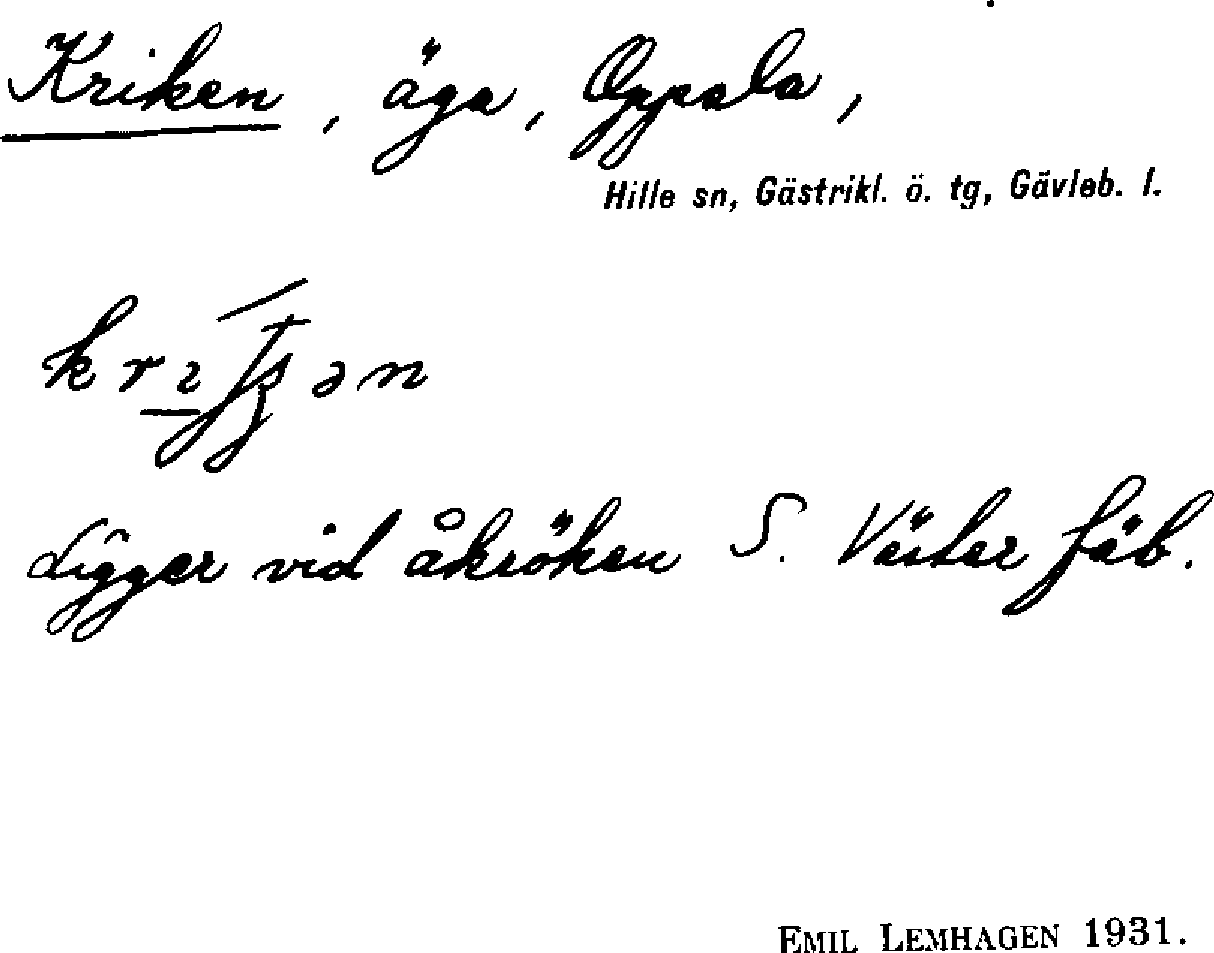 Kriken, äga, Oppala,
Hille sn, Gästrikl. ö. tg, Gävleb. l.
Ligger vid åkröken S. Väster fäb.
EMIL LEMHAGEN 1931.